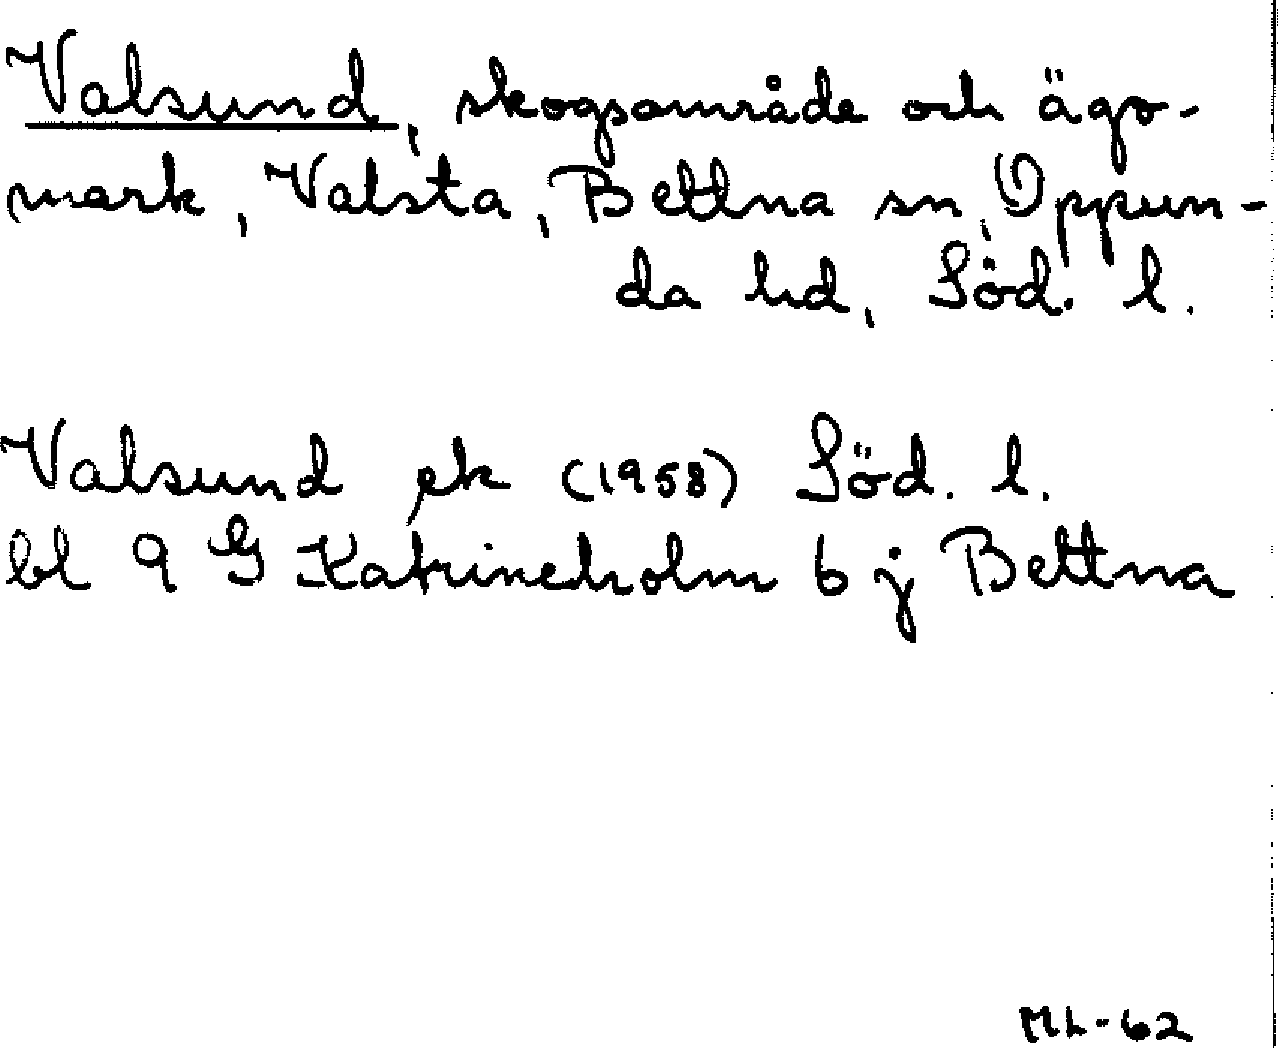 Valsund, skogsområde och ägo-
mark, Valsta, Bettna sn, Oppun-
da hd, Söd. l.
Valsund ek (1958) Söd. l.
bl 9 G Katrineholm 6 j Bettna
ML-62